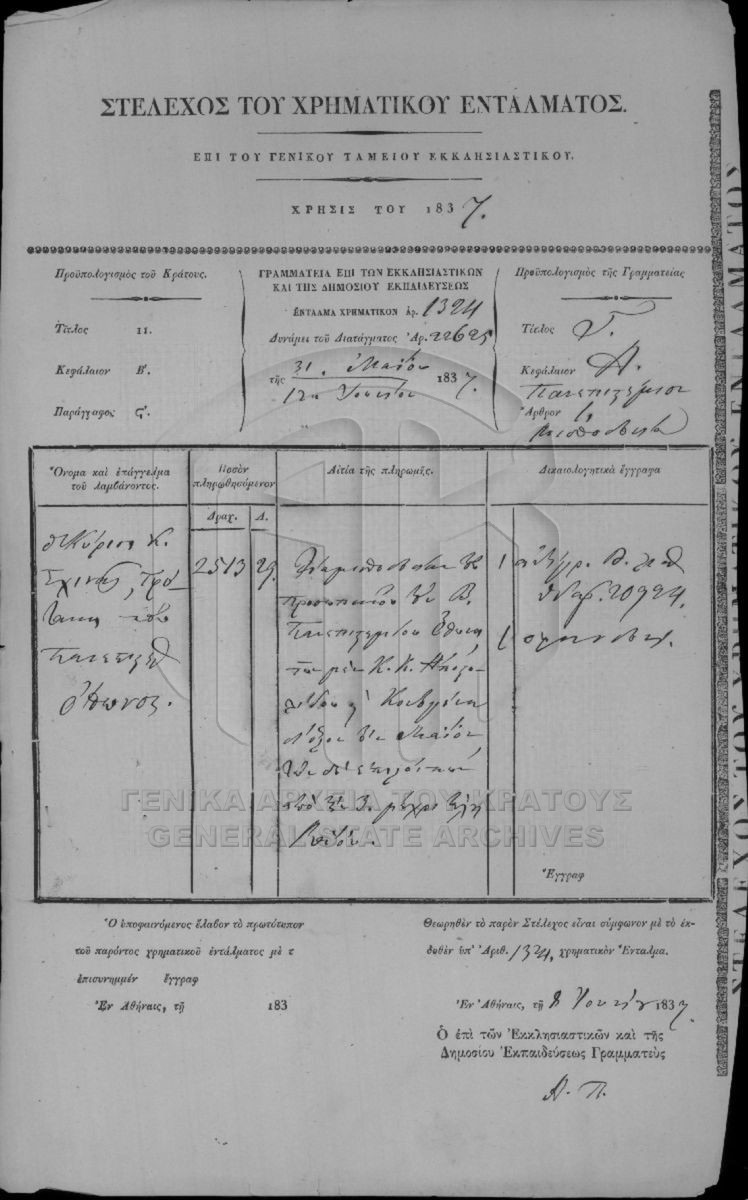 ΣΤΕΛΕΧΟΣ ΤΟΥ ΧΡΗΜΑΤΙΚΟΥ ΕΝΤΑΛΜΑΤΟΣ.
ΕΠΙ ΤΟΥ ΓΕΝΙΚΟΥ ΤΑΜΕΙΟΥ ΕΚΚΛΗΣΙΑΣΤΙΚΟΥ.
ΧΡΗΣΙΣ ΤΟΥ 1837.
Προϋπολογισμὸς τοῦ Κράτους.
Τίτλος II.
Κεφάλαιον Β'.
Παράγραφος ς'.
ΓΡΑΜΜΑΤΕΙΑ ΕΠΙ ΤΩΝ ΕΚΚΛΗΣΙΑΣΤΙΚΩΝ
ΚΑΙ ΤΗΣ ΔΗΜΟΣΙΟΥ ΕΚΠΑΙΔΕΥΣΕΩΣ
ΕΝΤΑΛΜΑ ΧΡΗΜΑΤΙΚΟΝ ἀρ. 1324
Δυνάμει τοῦ Διατάγματος Ἀρ. 22625
31. Μαΐου
τῆς 1837.
12 Ἰουνίου
Προϋπολογισμὸς τῆς Γραμματείας
Τίτλος Γ.
Κεφάλαιον Α.
Πανεπιστήμιον
Ἄρθρον 1,
μισθοδοσία
Ὄνομα καὶ ἐπάγγελμα
τοῦ λαμβάνοντος.
Ποσὸν
πληρωθησόμενον
Δραχ. Λ.
Αἰτία τῆς πληρωμῆς.
Δικαιολογητικὰ ἔγγραφα
Κύριος Κ.
Σχινᾶς, Πρύ-
τανις τοῦ
Πανεπιστ
Ὄθωνος.
2513 29.
μισθοδοσίαν τοῦ
προσωπικοῦ τοῦ Β.
Πανεπιστημίου Ὄθωνος
Μαΐου
ἀπὸ μέχρι τέλη
1
ἀρ. 20924.
1
Ἐγγραφ
Ὁ ὑποφαινόμενος ἔλαβον τὸ πρωτότυπον
τοῦ παρόντος χρηματικοῦ ἐντάλματος μὲ τ
ἐπισυνημμέν ἔγγραφ
Ἐν Ἀθήναις, τῇ 183
Θεωρηθὲν τὸ παρὸν Στέλεχος εἶναι σύμφωνον μὲ τὸ ἐκ-
δοθὲν ὑπ' Ἀριθ. 1324, χρηματικὸν Ἔνταλμα.
Ἐν Ἀθήναις, τῇ 8 Ἰουνίου 1837.
Ὁ ἐπὶ τῶν Ἐκκλησιαστικῶν καὶ τῆς
Δημοσίου Ἐκπαιδεύσεως Γραμματεὺς
Α. Π.
ΓΕΝΙΚΑ ΑΡΧΕΙΑ ΤΟΥ ΚΡΑΤΟΥΣ
GENERAL STATE ARCHIVES
ΣΤΕΛΕΧΟΣ ΤΟΥ ΧΡΗΜΑΤΙΚΟΥ ΕΝΤΑΛΜΑΤΟΣ